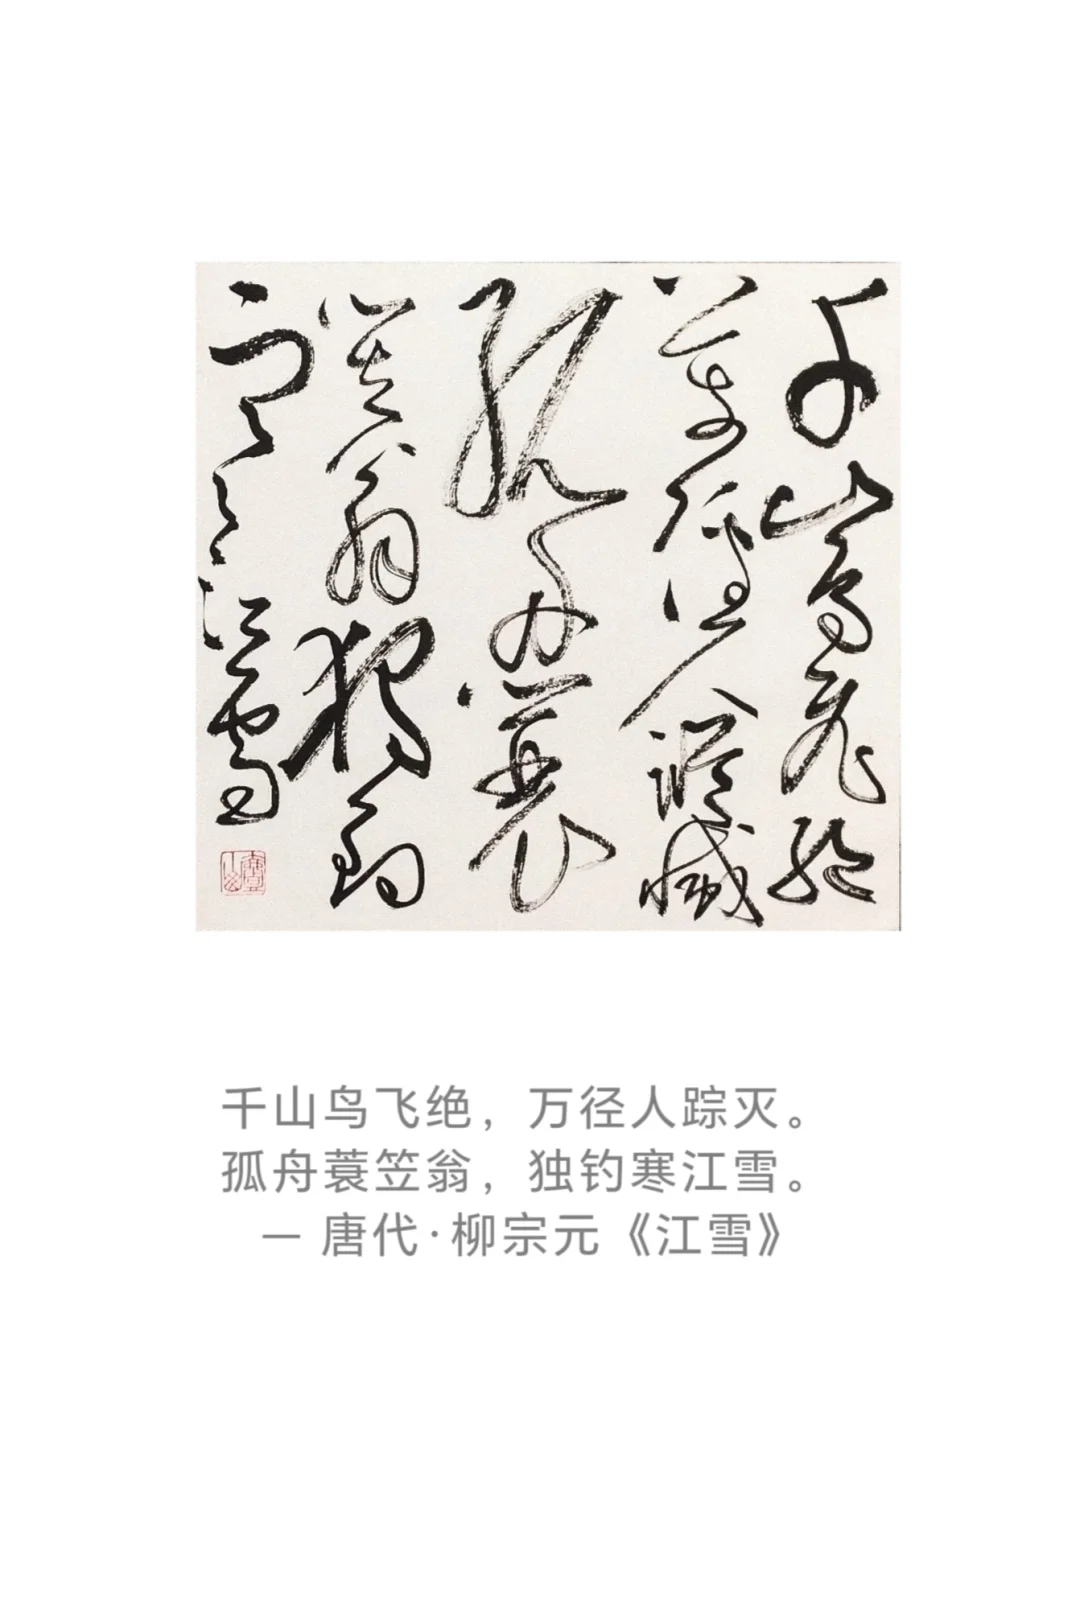 千山鸟飞绝
万径人踪灭
孤舟蓑
笠翁独钓
寒江雪
千山鸟飞绝，万径人踪灭。
孤舟蓑笠翁，独钓寒江雪。
— 唐代·柳宗元《江雪》